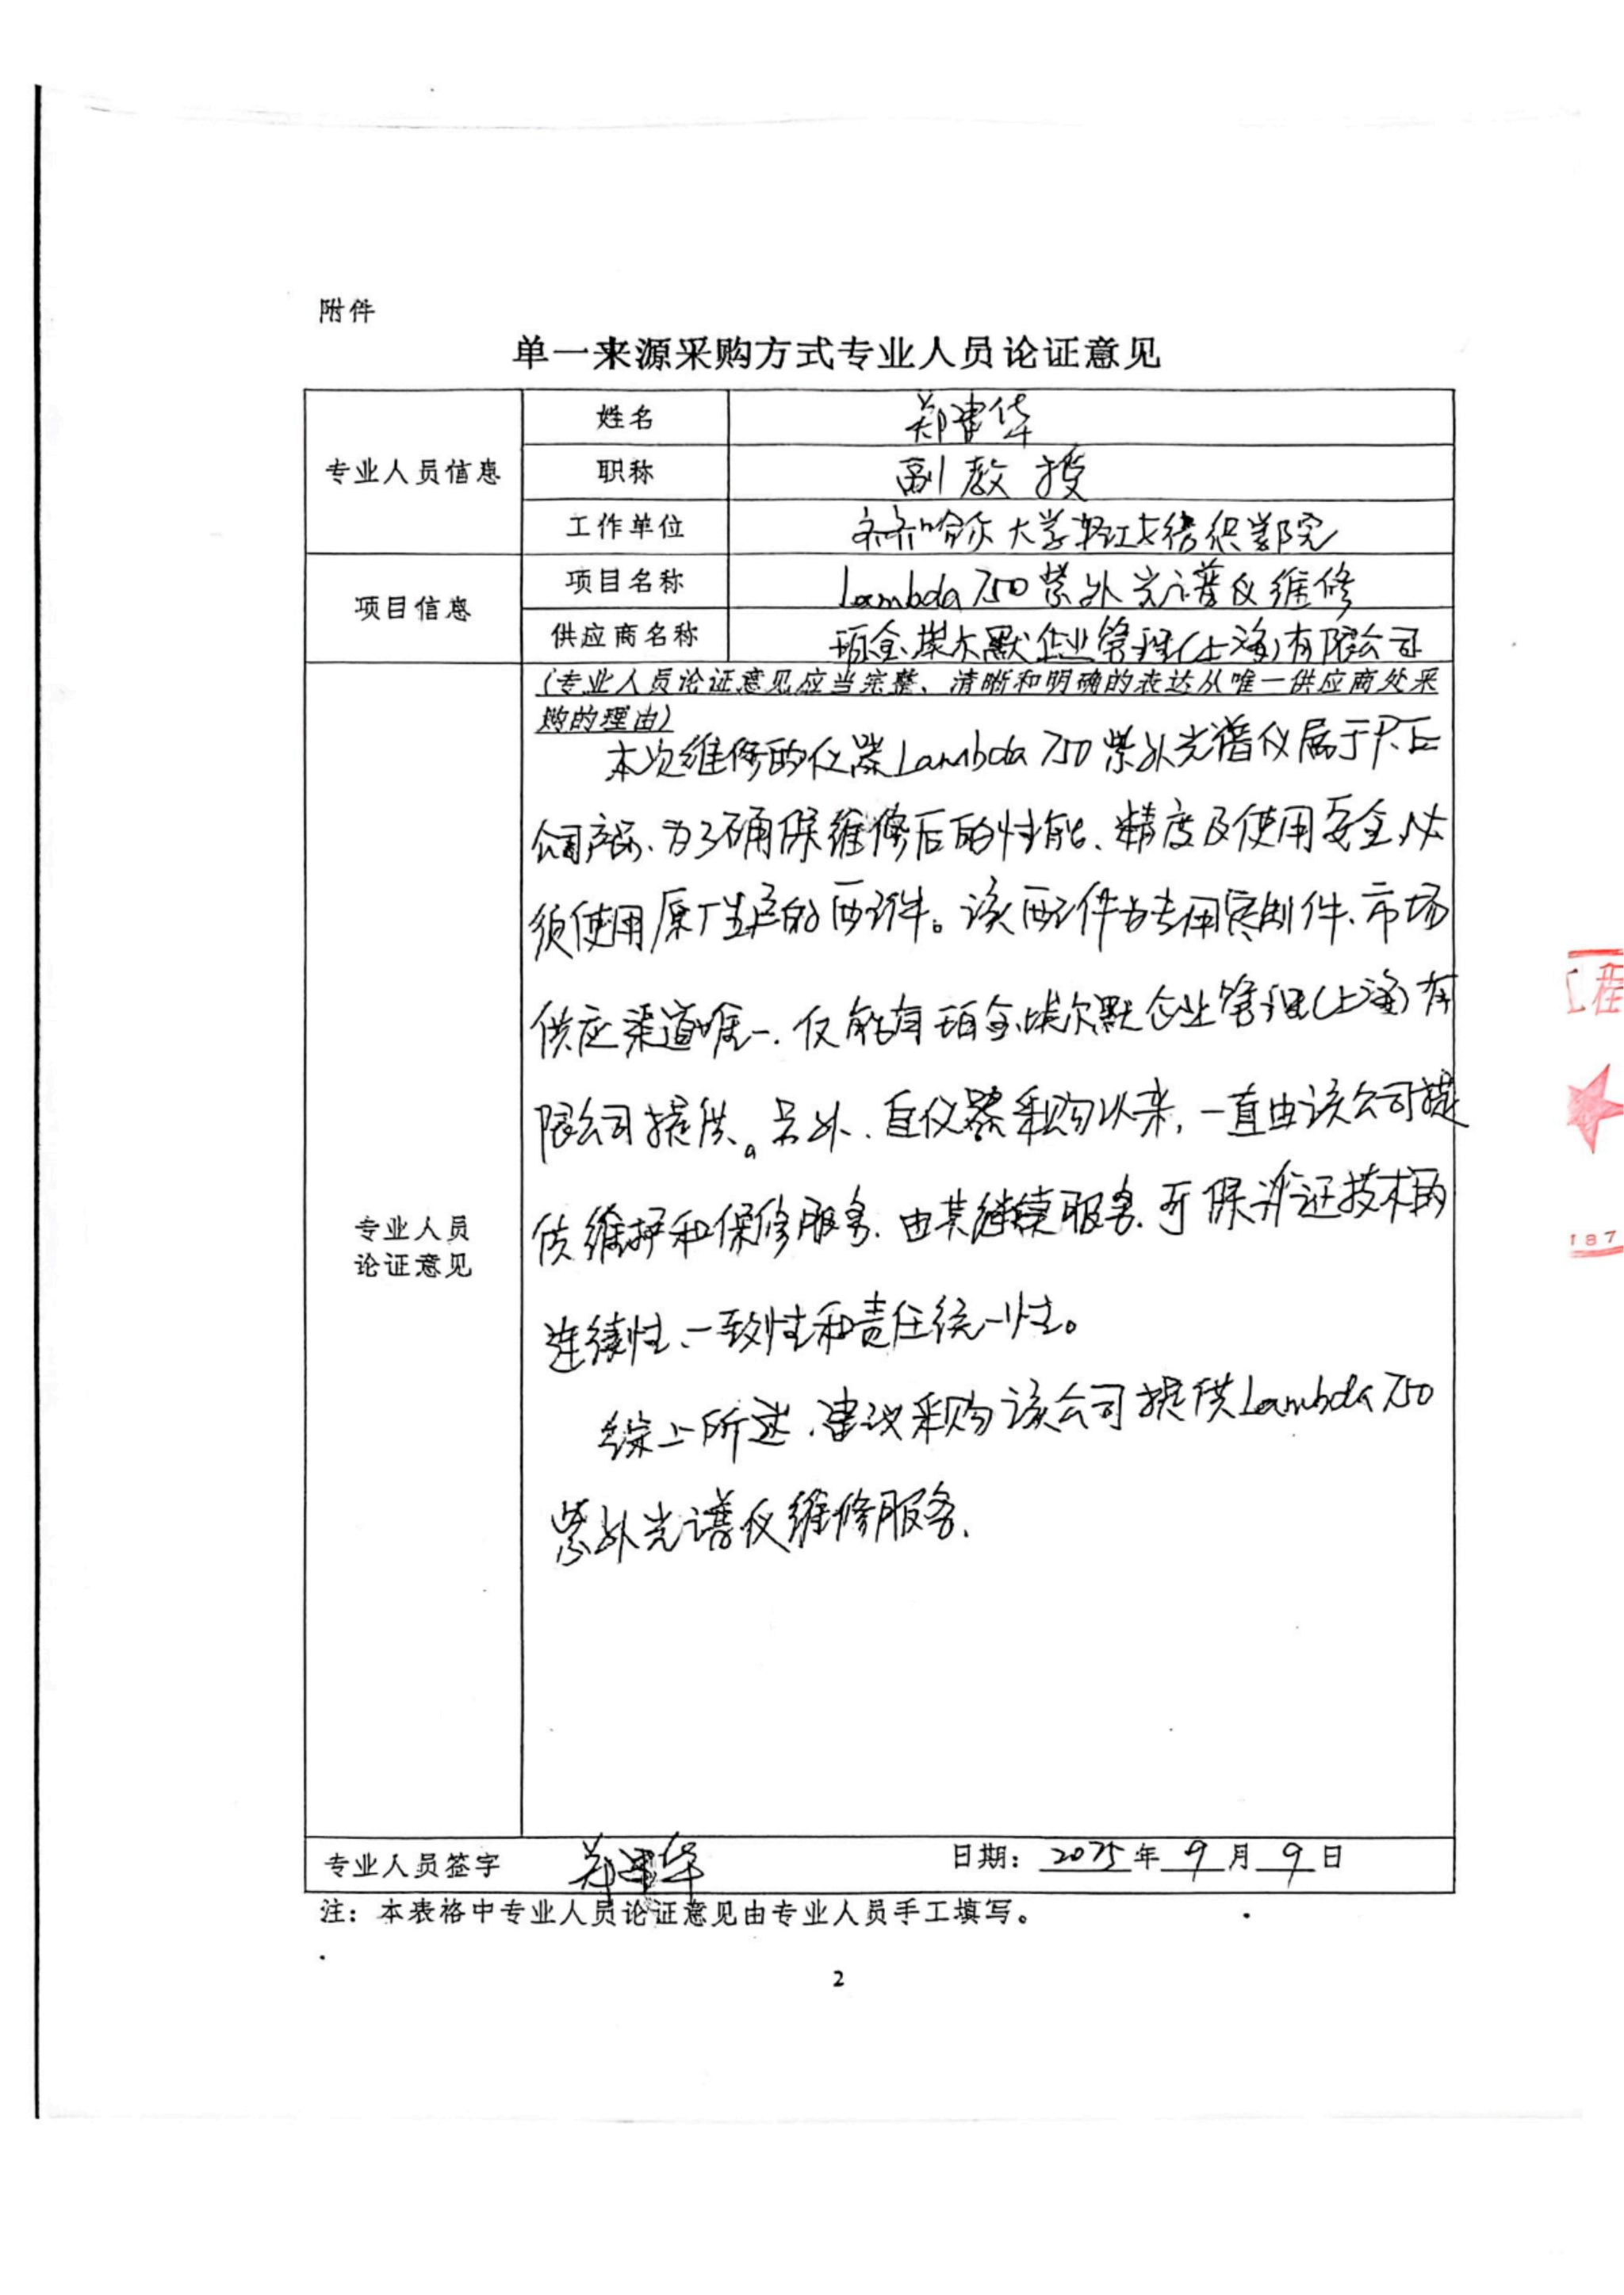 附件
单一来源采购方式专业人员论证意见
专业人员信息
姓名
郑建华
职称
副教授
工作单位
齐齐哈尔大学轻工与纺织学院
项目信息
项目名称
Lambda 750 紫外光谱仪维修
供应商名称
珀金埃尔默企业管理(上海)有限公司
专业人员
论证意见
(专业人员论证意见应当完整、清晰和明确的表达从唯一供应商处采
购的理由)
本次维修的仪器Lambda 750 紫外光谱仪属于P.E
公司产品、为了确保维修后的性能、精度及使用安全必
须使用原厂生产的配件。该配件为专用定制件、市场
供应渠道唯一.仅能有珀金埃尔默企业管理(上海)有
限公司提供。另外、自仪器采购以来,一直由该公司提
供维护和保修服务.由其继续服务.可保证技术的
连续性、一致性和责任统一性。
综上所述.建议采购该公司提供Lambda 750
紫外光谱仪维修服务.
专业人员签字
郑建华
日期: 2025 年 9 月 9 日
注:本表格中专业人员论证意见由专业人员手工填写。
2
工程
187